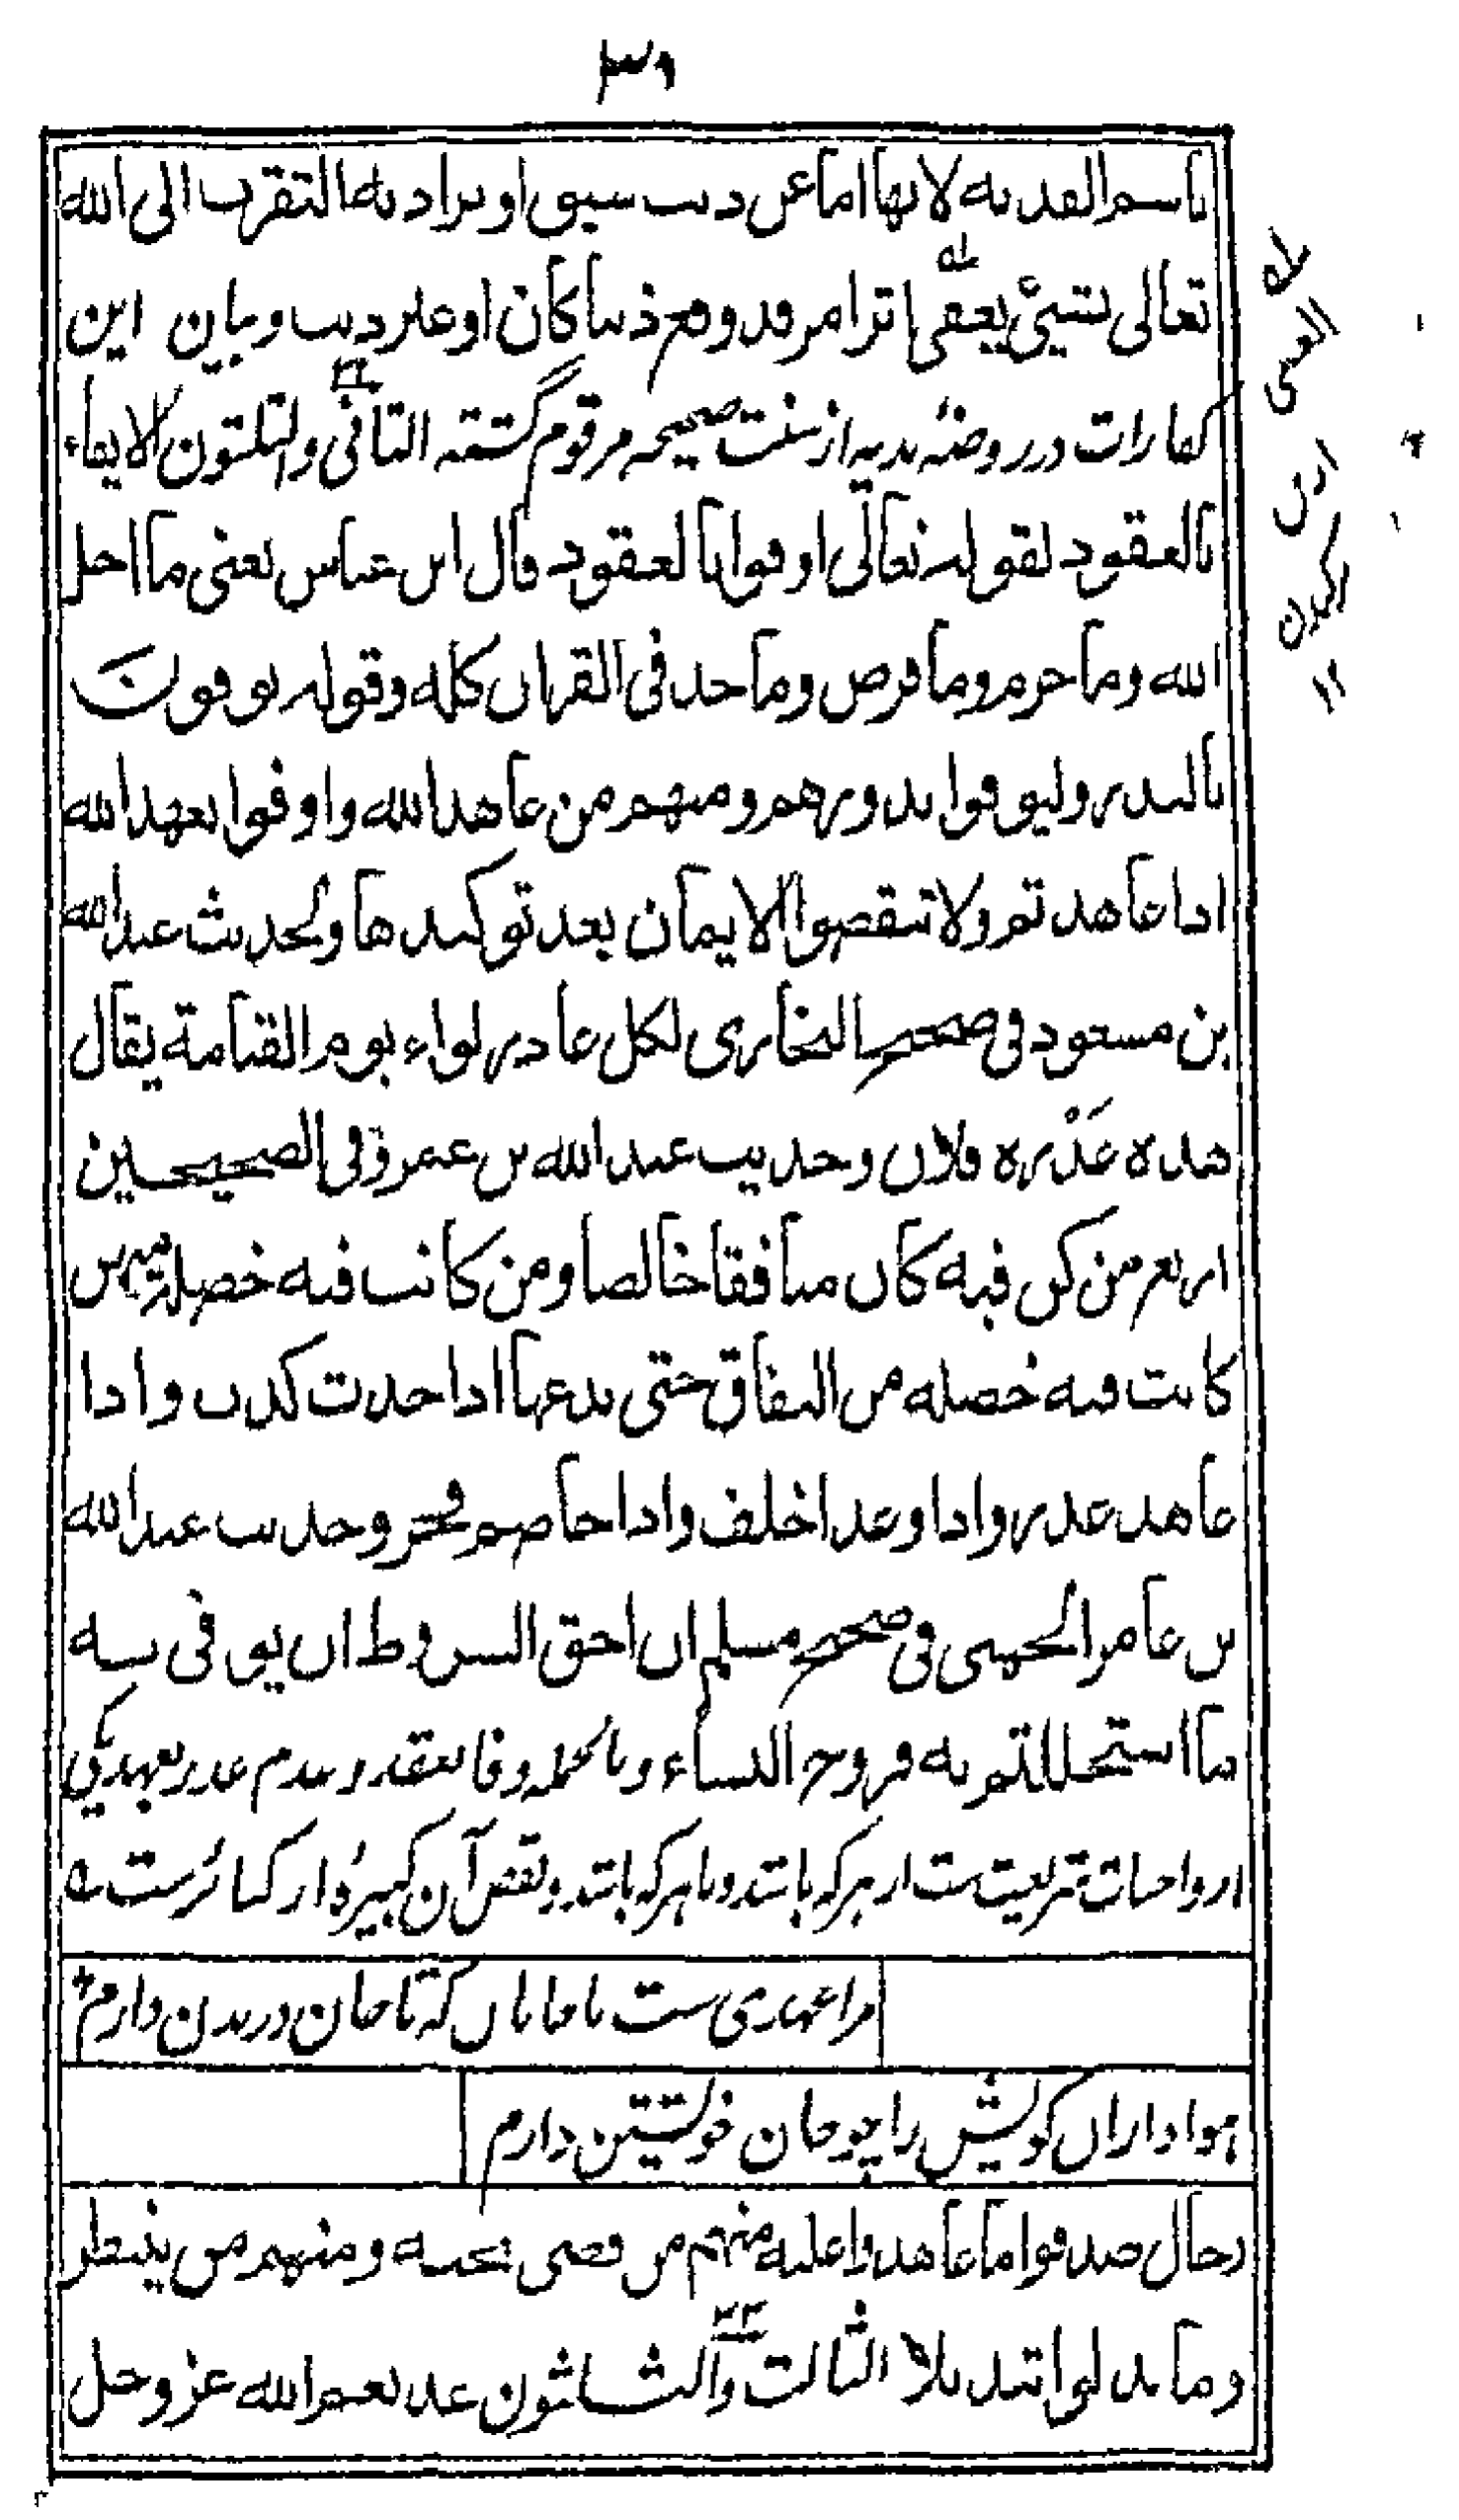 ۳۹
باسم الفدية لانها اما عن ذنب سبق او يراد بها التقرب الى الله
تعالى بشيئ يعفى اثر امر قد وقع ذنبا كان او غير ذنب و بيان اين
كفارات در روضۀ نديه از سنت صحيحه مرقوم گشته الثانى والثلثون الايفاء
بالعقود لقوله تعالى اوفوا بالعقود قال ابن عباس يعنى ما احل
الله وما حرم وما فرض وما حد فى القران كله وقوله يوفون
بالنذر وليوفوا نذورهم ومنهم من عاهد الله واوفوا بعهد الله
اذا عاهدتم ولا تنقضوا الايمان بعد توكيدها ولحديث عبد الله
بن مسعود فى صحيح البخارى لكل غادر لواء يوم القيامة يقال
هذه غَدْره فلان وحديث عبد الله بن عمرو فى الصحيحين
اربع من كن فيه كان منافقا خالصا ومن كانت فيه خصلة منهن
كانت فيه خصلة من النفاق حتى يدعها اذا حدث كذب واذا
عاهد غدر واذا وعد اخلف واذا خاصم فجر وحديث عبد الله
بن عامر الجهنى فى صحيح مسلم ان احق الشروط ان يوفى به
ما استحللتم به فروج النساء وبالجمله وفا بعقد و عدم غدر بعهد يكى
از واجبات شريعت ست از هر كه باشد و با هر كه باشد و نقض آن كبيره از كبائرست ه
مرا عهدى ست با جانان كه تا جان در بدن دارم
هواداران كويش را چو جان خويشتن دارم
رجال صدقوا ما عاهدوا عليه منهم من قضى نحبه ومنهم من ينتظر
وما بدلوا تبديلا الثالث والثلاثون عد نعم الله عز وجل